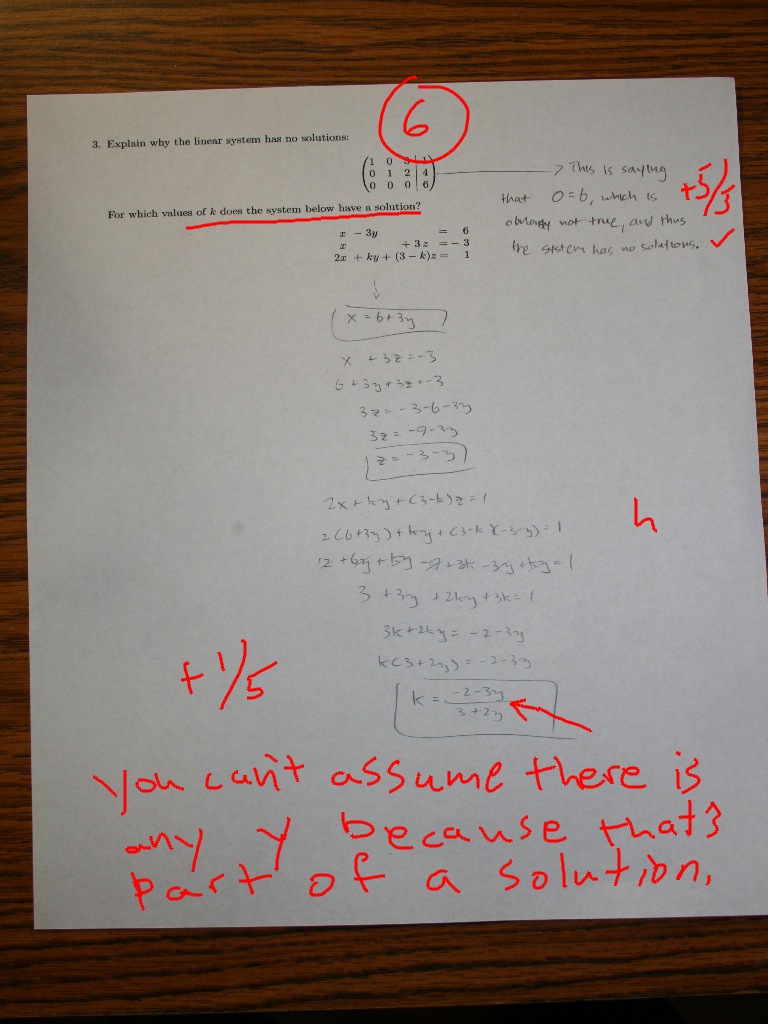 6
3. Explain why the linear system has no solutions:
1 0 3 | 1
0 1 2 | 4
0 0 0 | 6
→ This is saying
that 0=6, which is
obviously not true, and thus
the system has no solutions. ✓
+5/5
For which values of k does the system below have a solution?
x − 3y = 6
x + 3z = −3
2x + ky + (3 − k)z = 1
x = 6+3y
x + 3z = -3
6 + 3y + 3z = -3
3z = -3-6-3y
3z = -9-3y
z = -3-y
2x + ky + (3-k)z = 1
2(6+3y) + ky + (3-k)(-3-y) = 1
12 + 6y + ky -9 + 3k -3y + ky = 1
3 + 3y + 2ky + 3k = 1
3k + 2ky = -2-3y
k(3+2y) = -2-3y
k = -2-3y / 3+2y
h
+1/5
You can't assume there is
any y because that's
part of a solution.